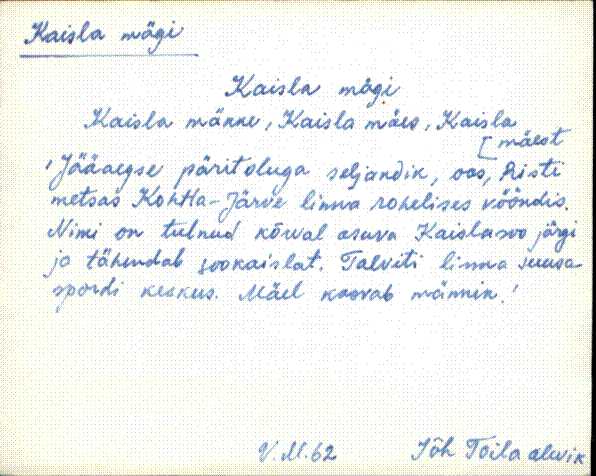 Kaisla mägi
Kaisla mägi
Kaisla mänke, Kaisla mäes, Kaisla
[mäest
'Jääaegse päritoluga seljandik, oos, Risti
metsas Kohtla-Järve linna rohelises vööndis.
Nimi on tulnud kõrval asuva Kaislasoo järgi
ja tähendab sookaislat. Talviti linna suusa-
spordi keskus. Mäel kasvab männik.'
V.M.62 Jõh Toila alevik